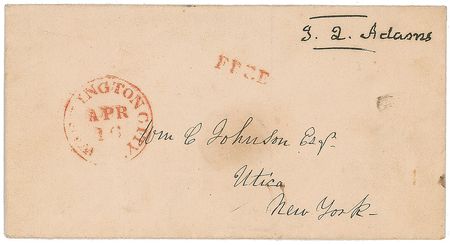 J. Q. Adams
FREE
WASHINGTON CITY
APR
16
Wm C Johnson Esqr.
Utica
New York-